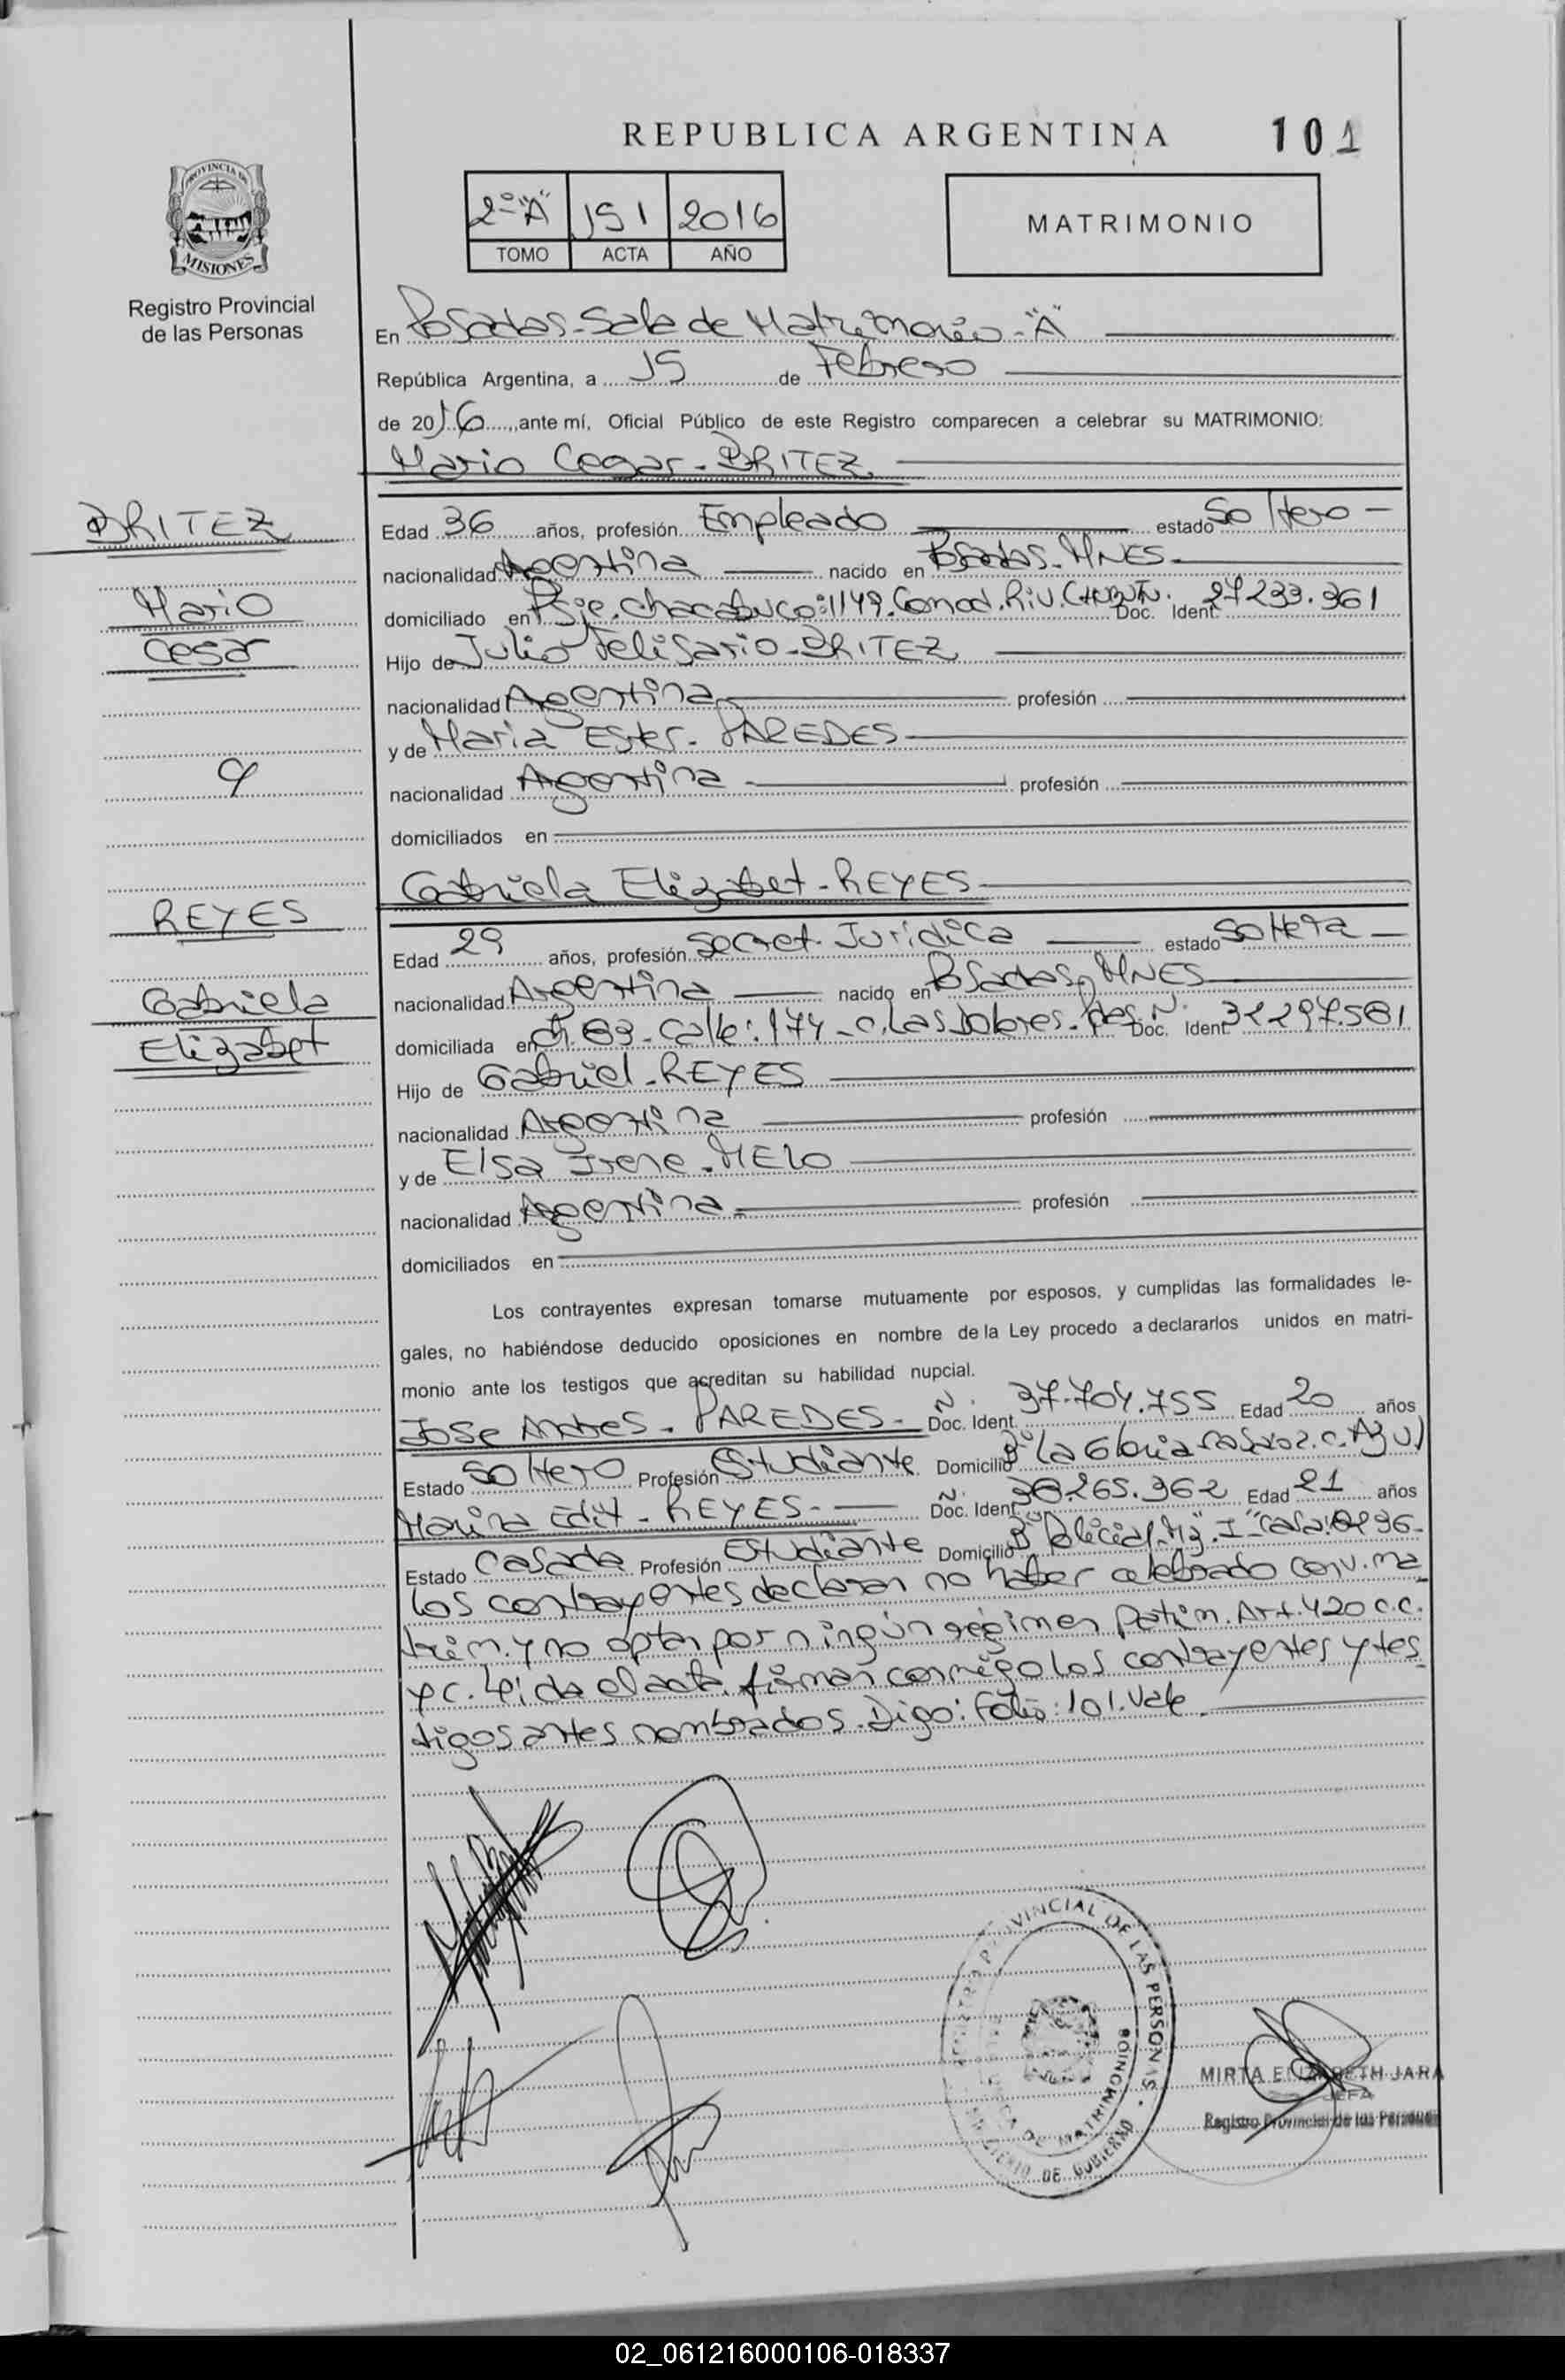 REPUBLICA ARGENTINA 101
PROVINCIA DE MISIONES
Registro Provincial
de las Personas
2º "A" 151 2016
TOMO ACTA AÑO
MATRIMONIO
En Posadas-Sala de Matrimonio-"A"
República Argentina, a 15 de Febrero
de 2016, ante mí, Oficial Público de este Registro comparecen a celebrar su MATRIMONIO:
Mario Cesar-BRITEZ
BRITEZ
Mario
Cesar
Edad 36 años, profesión Empleado estado Soltero-
nacionalidad Argentina nacido en Posadas-MNES-
domiciliado en Psje. Chacabuco:1149. Comod. Riv. CHUBUT. Doc. Ident. 27.233.361
Hijo de Julio Felisario-BRITEZ
nacionalidad Argentina profesión
y de Maria Ester-PAREDES
nacionalidad Argentina profesión
domiciliados en
y
Gabriela Elizabet-REYES
REYES
Gabriela
Elizabet
Edad 29 años, profesión Secret. Juridica estado Soltera-
nacionalidad Argentina nacido en Posadas-MNES
domiciliada en Calle: 174-C. Las Dolores-Pdas. Nº Doc. Ident. 32.297.581
Hijo de Gabriel-REYES
nacionalidad Argentina profesión
y de Elsa Irene-MELO
nacionalidad Argentina profesión
domiciliados en
Los contrayentes expresan tomarse mutuamente por esposos, y cumplidas las formalidades le-
gales, no habiéndose deducido oposiciones en nombre de la Ley procedo a declararlos unidos en matri-
monio ante los testigos que acreditan su habilidad nupcial.
Jose Andres-PAREDES- Nº Doc. Ident. 37.704.755 Edad 20 años
Estado Soltero Profesión Estudiante Domicilio Bº La Gloria casa 02. C. Azul
Marina Edit-REYES- Nº Doc. Ident. 38.265.362 Edad 21 años
Estado Casada Profesión Estudiante Domicilio Bº Policial. Mz. "I" casa:
Los contrayentes declaran no haber celebrado conv. ma
trim. y no optan por ningún régimen Patrim. Art. 420 C.C.
y C. Leida el acta, firman conmigo los contrayentes y tes
tigos antes nombrados. Digo: Folio: 101. Vale.
REGISTRO PROVINCIAL DE LAS PERSONAS
MATRIMONIOS
MINISTERIO DE GOBIERNO
MIRTA ELIZABETH JARA
JEFA
Registro Provincial de las Personas
02_061216000106-018337